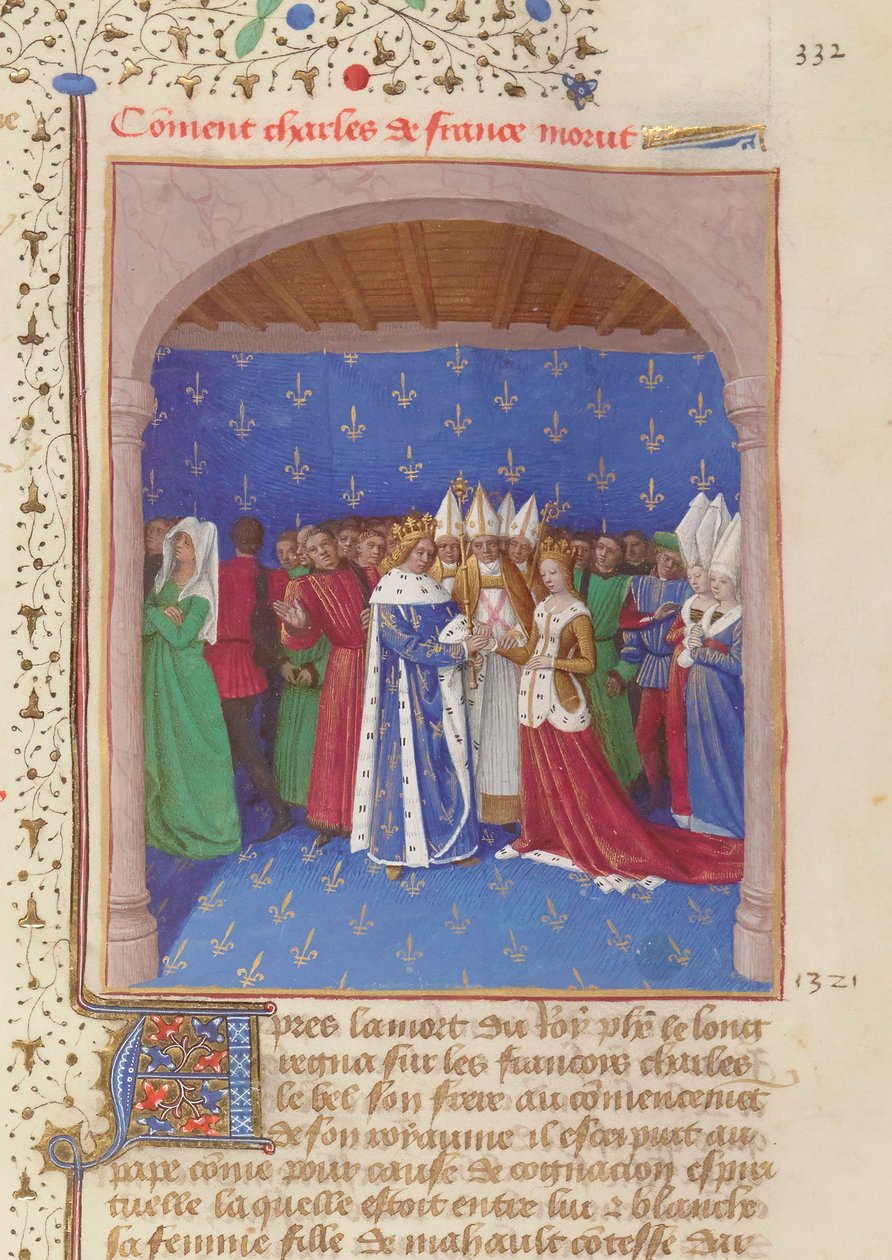 332
Cõment charles de france morut
1321
Apres la mort du roy phẽ le long
regna sur les francois charles
le bel son frere au cõmencemẽt
de son royaume il escripuit au
pape cõme pour cause de cognacion espiri
tuelle la quelle estoit entre lui & blanche
sa femme fille de mahault cõtesse dar